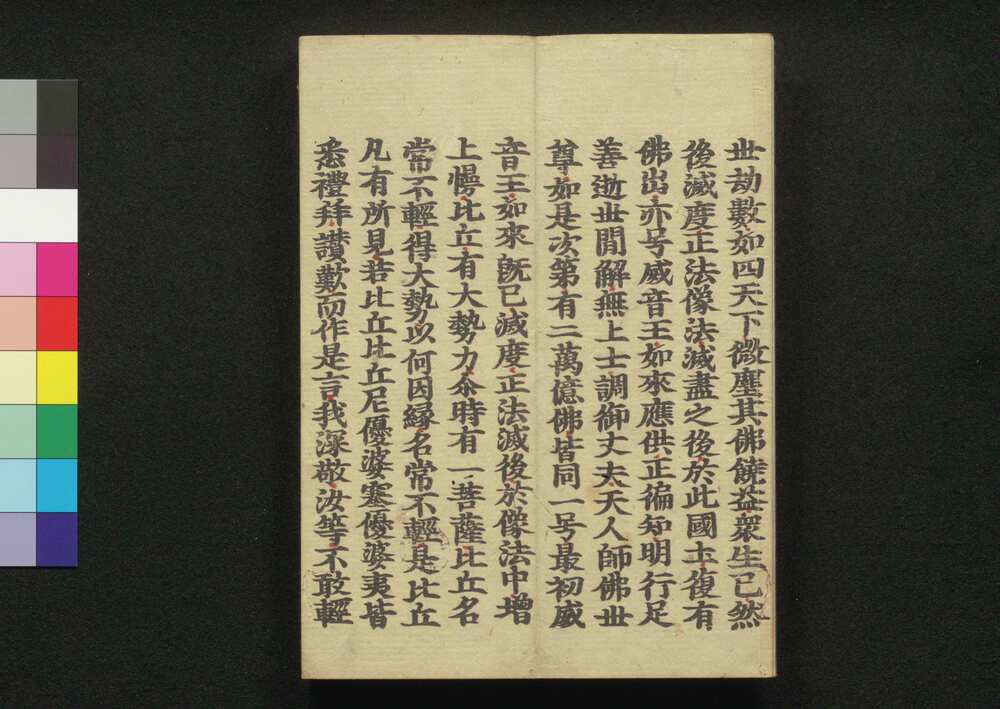 世劫數如四天下微塵其佛饒益衆生已然
後滅度正法像法滅盡之後於此國土復有
佛出亦号威音王如來應供正徧知明行足
善逝世間解無上士調御丈夫天人師佛世
尊如是次第有二萬億佛皆同一号最初威
音王如來既已滅度正法滅後於像法中增
上慢比丘有大勢力尒時有一菩薩比丘名
常不輕得大勢以何因緣名常不輕是比丘
凡有所見若比丘比丘尼優婆塞優婆夷皆
悉禮拜讚歎而作是言我深敬汝等不敢輕